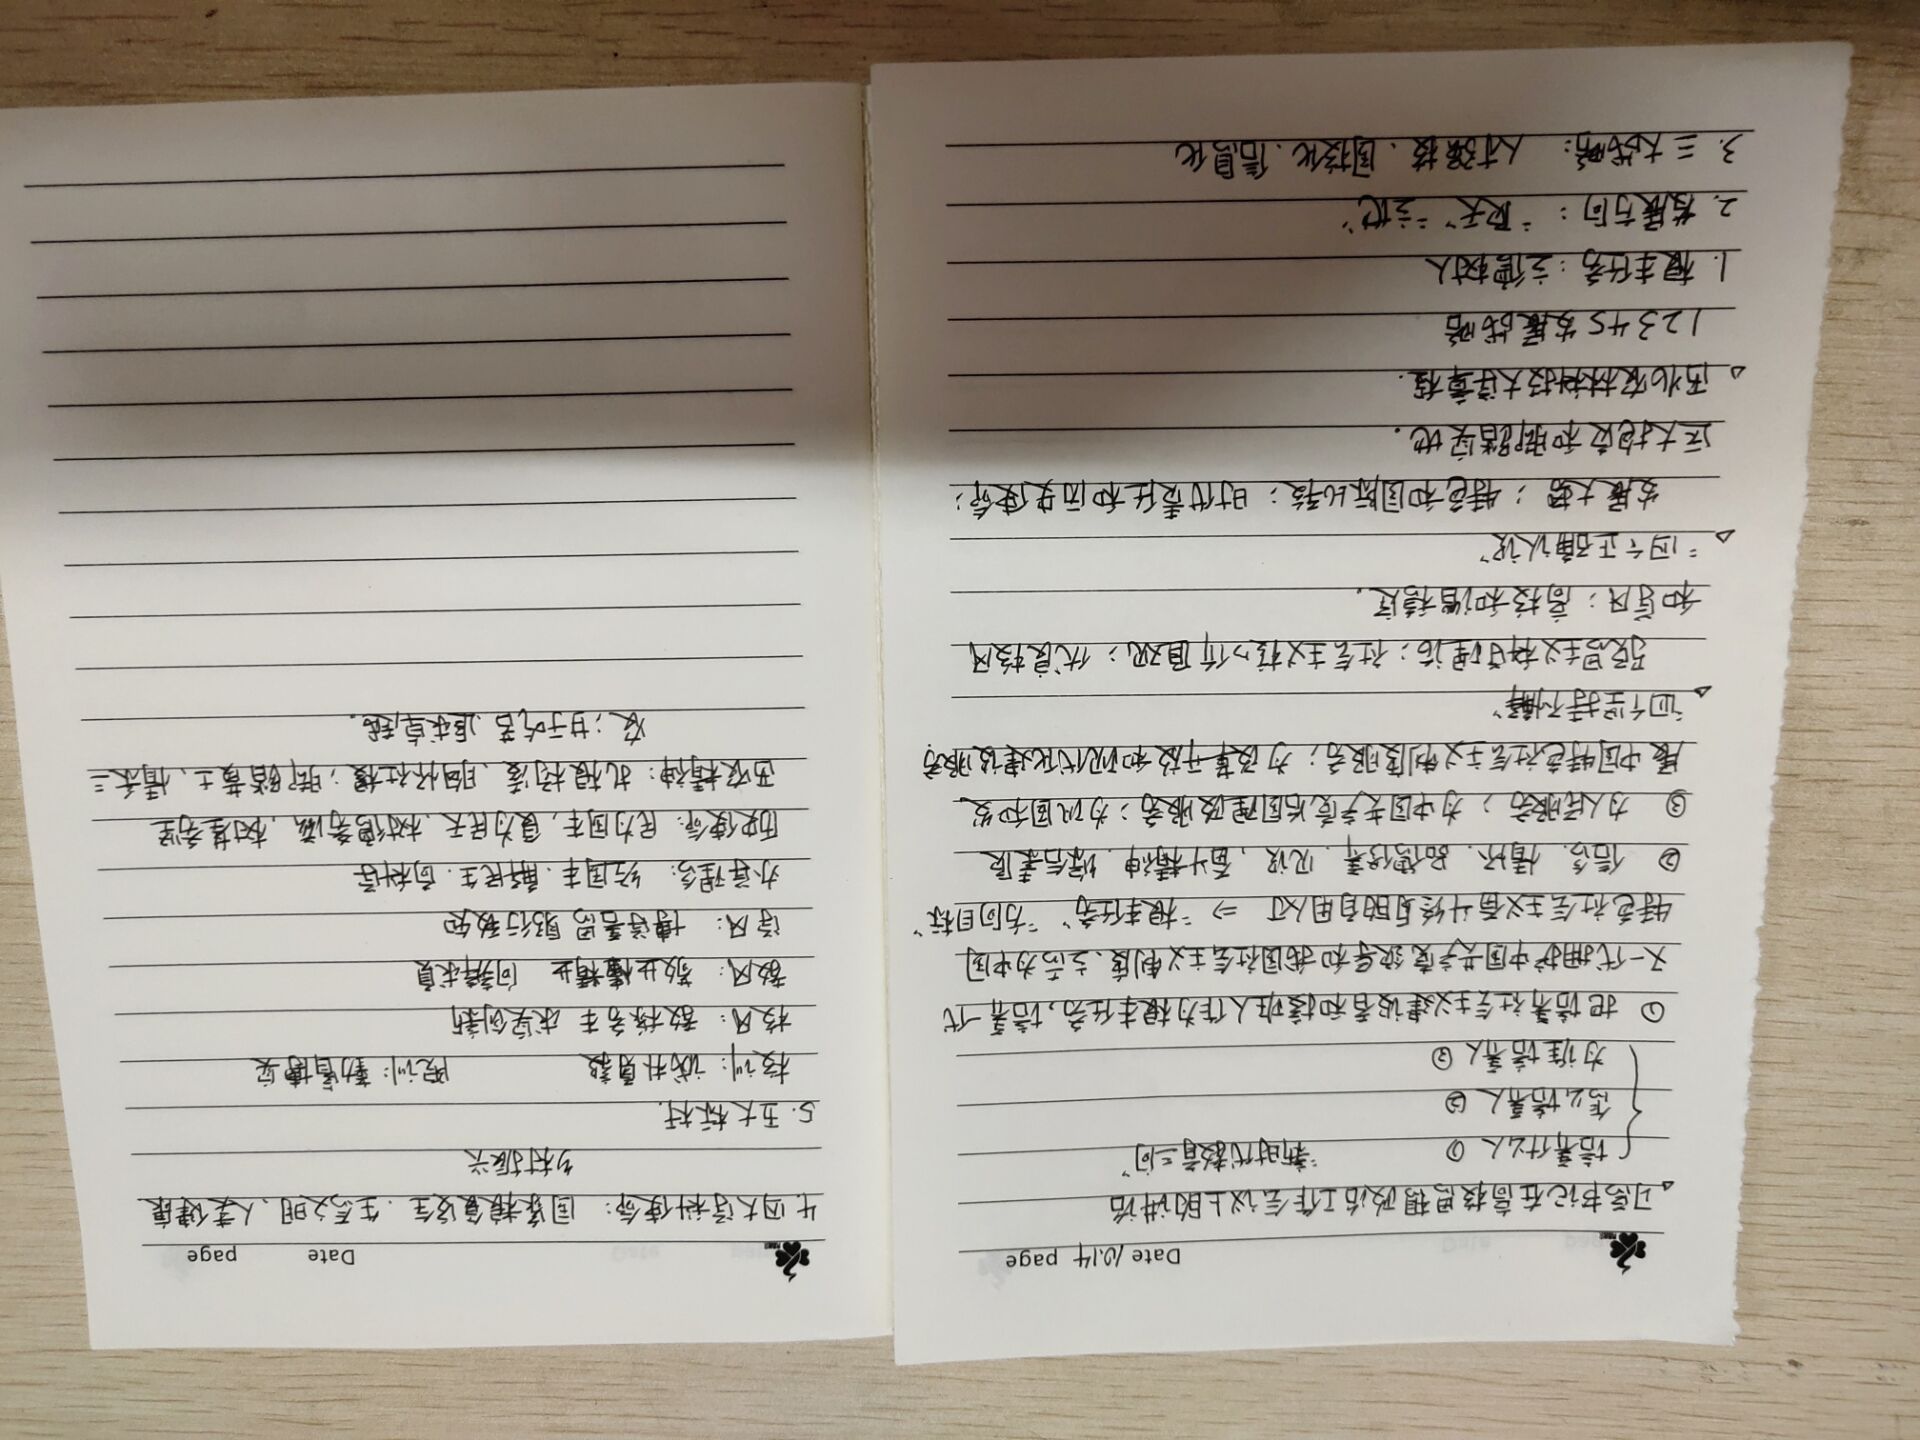 Date 10.14 page
△ 习总书记在高校思想政治工作会议上的讲话
培养什么人 ① “新时代教育三问”
怎么培养人 ②
为谁培养人 ③
① 把培养社会主义建设者和接班人作为根本任务,培养一代
又一代拥护中国共产党领导和我国社会主义制度、立志为中国
特色社会主义奋斗终身的有用人才 ⇒ “根本任务” “方向目标”
② 信念、情怀、品德修养、见识、奋斗精神、综合素质
③ 为人民服务;为中国共产党治国理政服务;为巩固和发
展中国特色社会主义制度服务;为改革开放和现代化建设服务.
△ “四个坚持不懈”
马克思主义科学理论;社会主义核心价值观;优良校风
和学风;高校和谐稳定.
△ “四个正确认识”
发展大势;特色和国际比较;时代责任和历史使命;
远大抱负和脚踏实地.
△ 西北农林科技大学章程.
12345发展战略
1. 根本任务:立德树人
2. 发展方向:“顶天”“立地”
3. 三大战略: 人才强校、国际化、信息化
Date page
4. 四大学科使命: 国家粮食安全、生态文明、人类健康
乡村振兴
5. 五大标杆.
校训: 诚朴勇毅 院训: 勤育博实
校风: 敬格务本 求实创新
教风: 敬业精业 问辨求真
学风: 博学善思 笃行致知
办学理念: 经国本、解民生、尚科学
历史使命: 民为国本,食为民天,树德务滋,树基务坚
西农精神: 扎根杨凌、胸怀社稷;脚踏黄土、情系三
农;甘于吃苦、追求卓越.